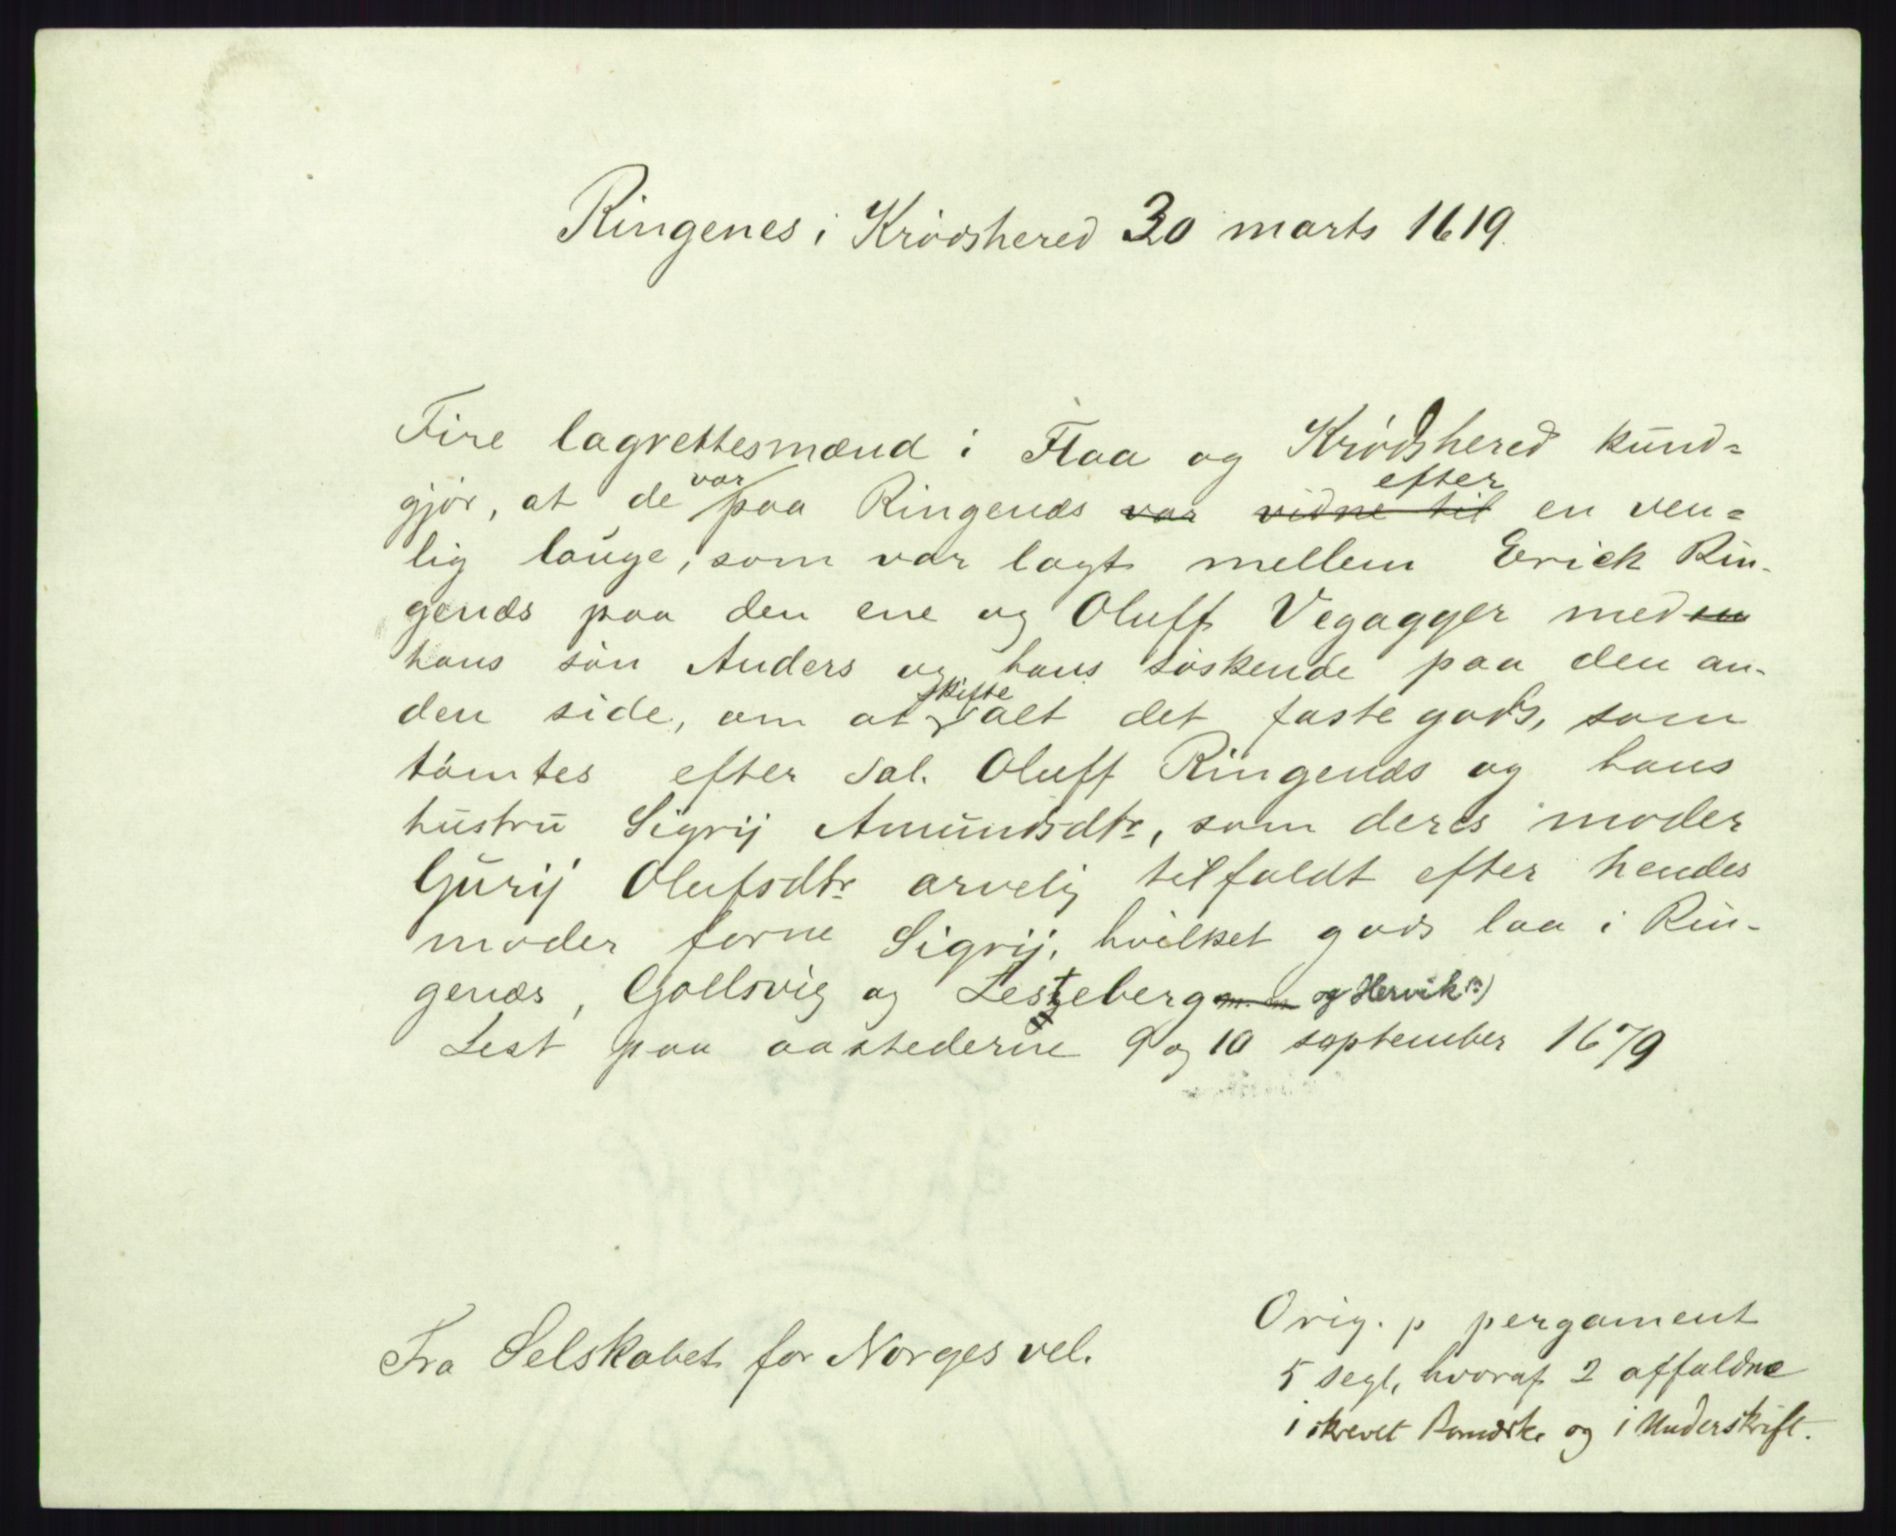 Ringenes i Krødshered 30 marts 1619.
Fire lagrettesmænd i Flaa og Krødshered kund-
gjør, at de var paa Ringenæs var vidne til efter en ven-
lig lauge, som var lagt mellem Erick Rin-
genæs paa den ene og Oluff Vegagger med en
hans søn Anders og hans søskende paa den an-
den side, om at skifte alt det faste gods, som
tømtes efter sal. Oluff Ringenæs og hans
hustru Sigrij Amundsdtr, som deres moder
Gurij Olufsdtr arvelig tilfaldt efter hendes
moder forne Sigrij, hvilket gods laa i Rin-
genæs, Gollsvig og Lesteberg og Hervik
Lest paa aastederne 9 og 10 september 1679
Fra Selskabet for Norges vel.
Orig. p pergament
5 segl, hvoraf 2 affaldne
i skrevet Bomærke og i Underskrift.